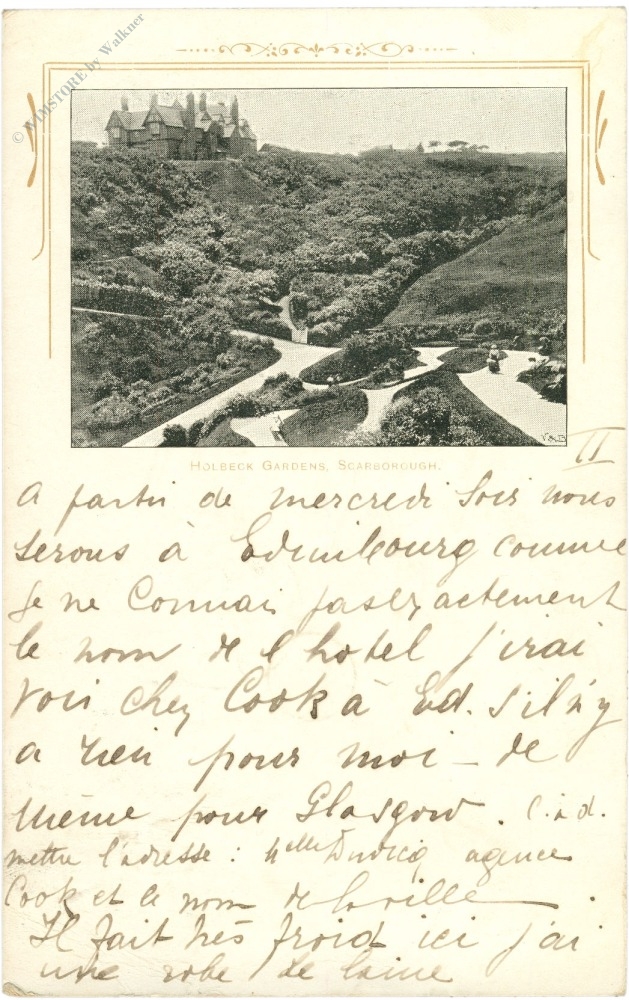 © WIMSTORE by Walkner
V&B
HOLBECK GARDENS, SCARBOROUGH.
II
A partir de mercredi soir nous
serons à Edimbourg comme
Je ne connais pas exactement
le nom de l'hotel j'irai
voir chez Cook à Ed. s'il n'y
a rien pour moi - de
même pour Glasgow. C.à.d.
mettre l'adresse : Melle agence
Cook et le nom de la ville.
Il fait très froid ici j'ai
une robe de laine